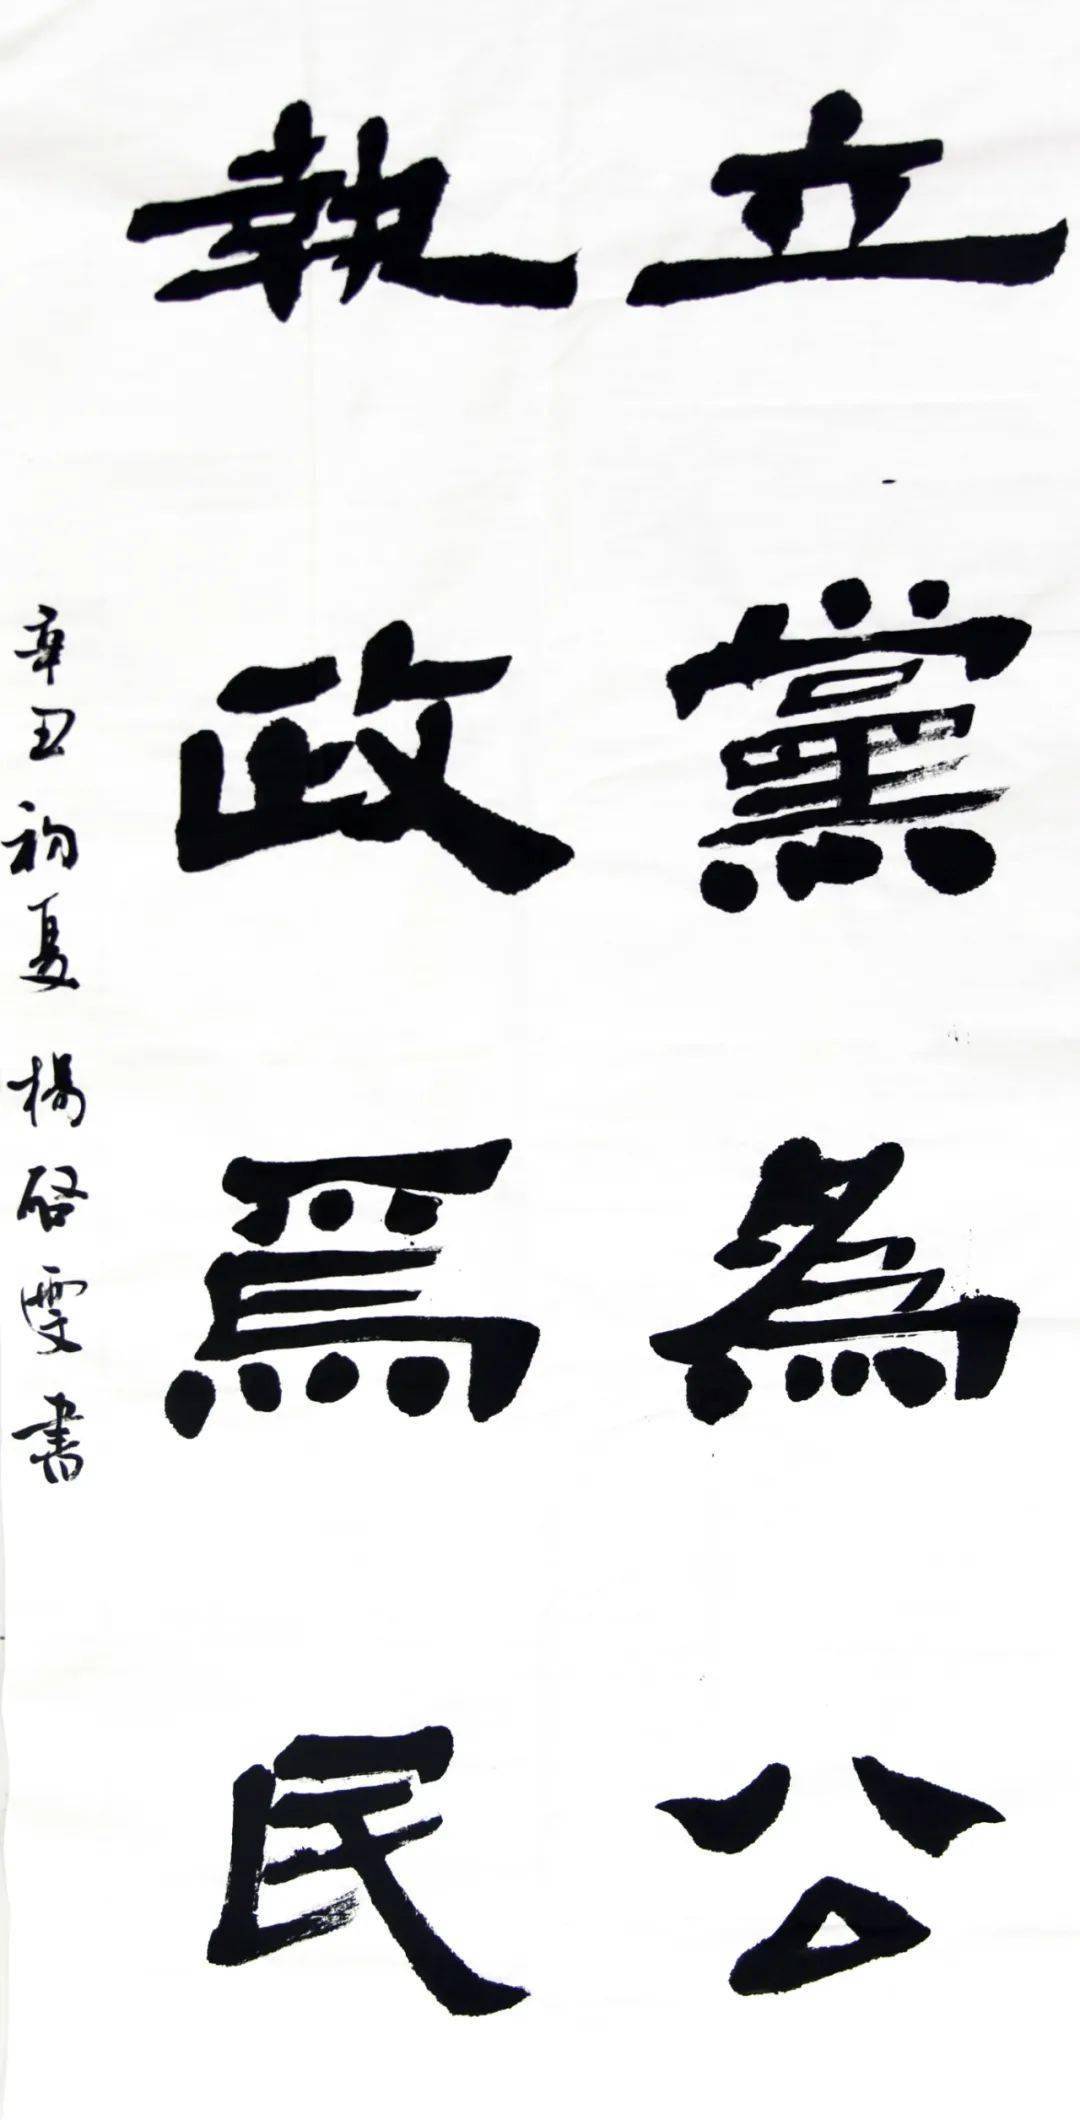 立黨為公
執政爲民
辛丑初夏楊啓雯書